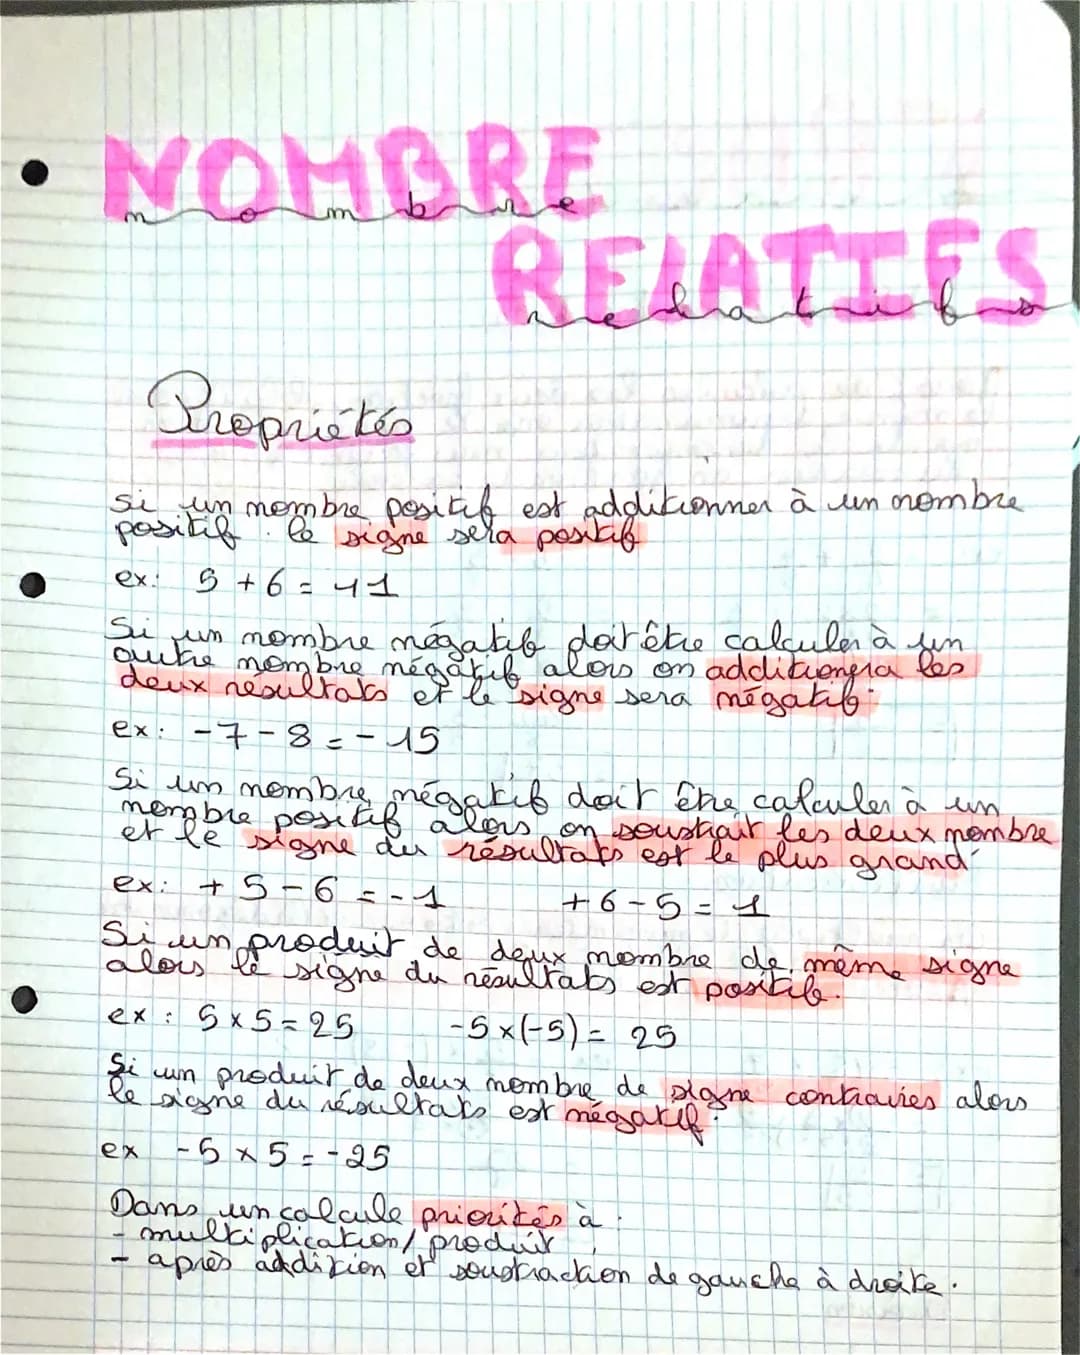 NOMBRE
nombre
RELATIFS
relatifs
Propriétés
Si un nombre positif est additionner à un nombre
positif : le signe sera positif
ex: 5 + 6 = 11
Si un nombre négatif doit être calculer à un
autre nombre négatif alors on additionera les
deux résultats et le signe sera négatif.
ex: -7-8 = -15
Si un nombre négatif doit être calculer à un
nombre positif alors on soustrait les deux nombre
et le signe du résultats est le plus grand
ex: +5-6 = -1 +6-5 = 1
Si un produit de deux nombre de même signe
alors le signe du résultats est positif.
ex : 5x5=25 -5x(-5)= 25
Si un produit de deux nombre de signe contraires alors
le signe du résultats est négatif.
ex -5x5=-25
Dans un calcule priorités à :
- multiplication/produit
- après addition et soustraction de gauche à droite.